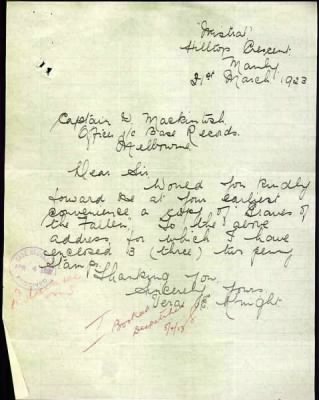 "Mistral"
Hilltop Crescent
Manly
21st March 1923
Captain D Mackintosh
Office i/c Base Records
Melbourne
Dear Sir
Would you kindly
forward me at your earliest
convenience a copy of Graves of
the Fallen, to the above
address for which I have
enclosed 3 (three) two penny
stamps.
Thanking you
Sincerely Yours
Vera E Knight
1 Booklet
Despatched